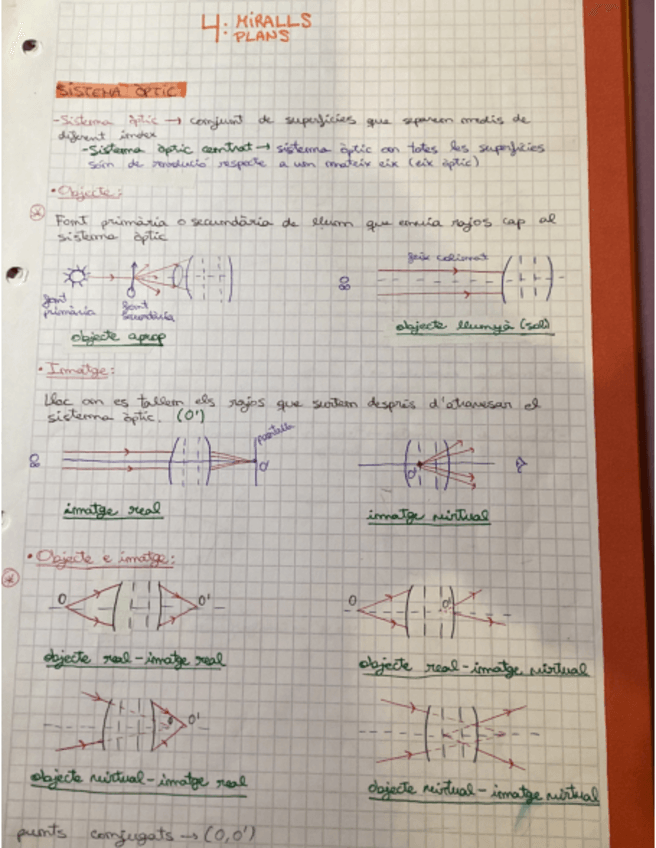 4: MIRALLS
PLANS
SISTEMA ÒPTIC
-Sistema òptic → conjunt de superfícies que separen medis de
diferent índex
-Sistema òptic centrat → sistema òptic on totes les superfícies
són de revolució respecte a un mateix eix (eix òptic)
• Objecte:
Font primària o secundària de llum que envia rajos cap al
sistema òptic
font primària
font secundària
objecte aprop
∞
feix colimat
objecte llunyà (sol)
• Imatge:
Lloc on es tallen els rajos que surten després d'atravesar el
sistema òptic. (O')
∞
pantalla
O'
imatge real
O'
imatge virtual
• Objecte e imatge:
O O'
objecte real-imatge real
O O'
objecte real-imatge virtual
O O'
objecte virtual-imatge real
objecte virtual-imatge virtual
punts conjugats → (O,O')